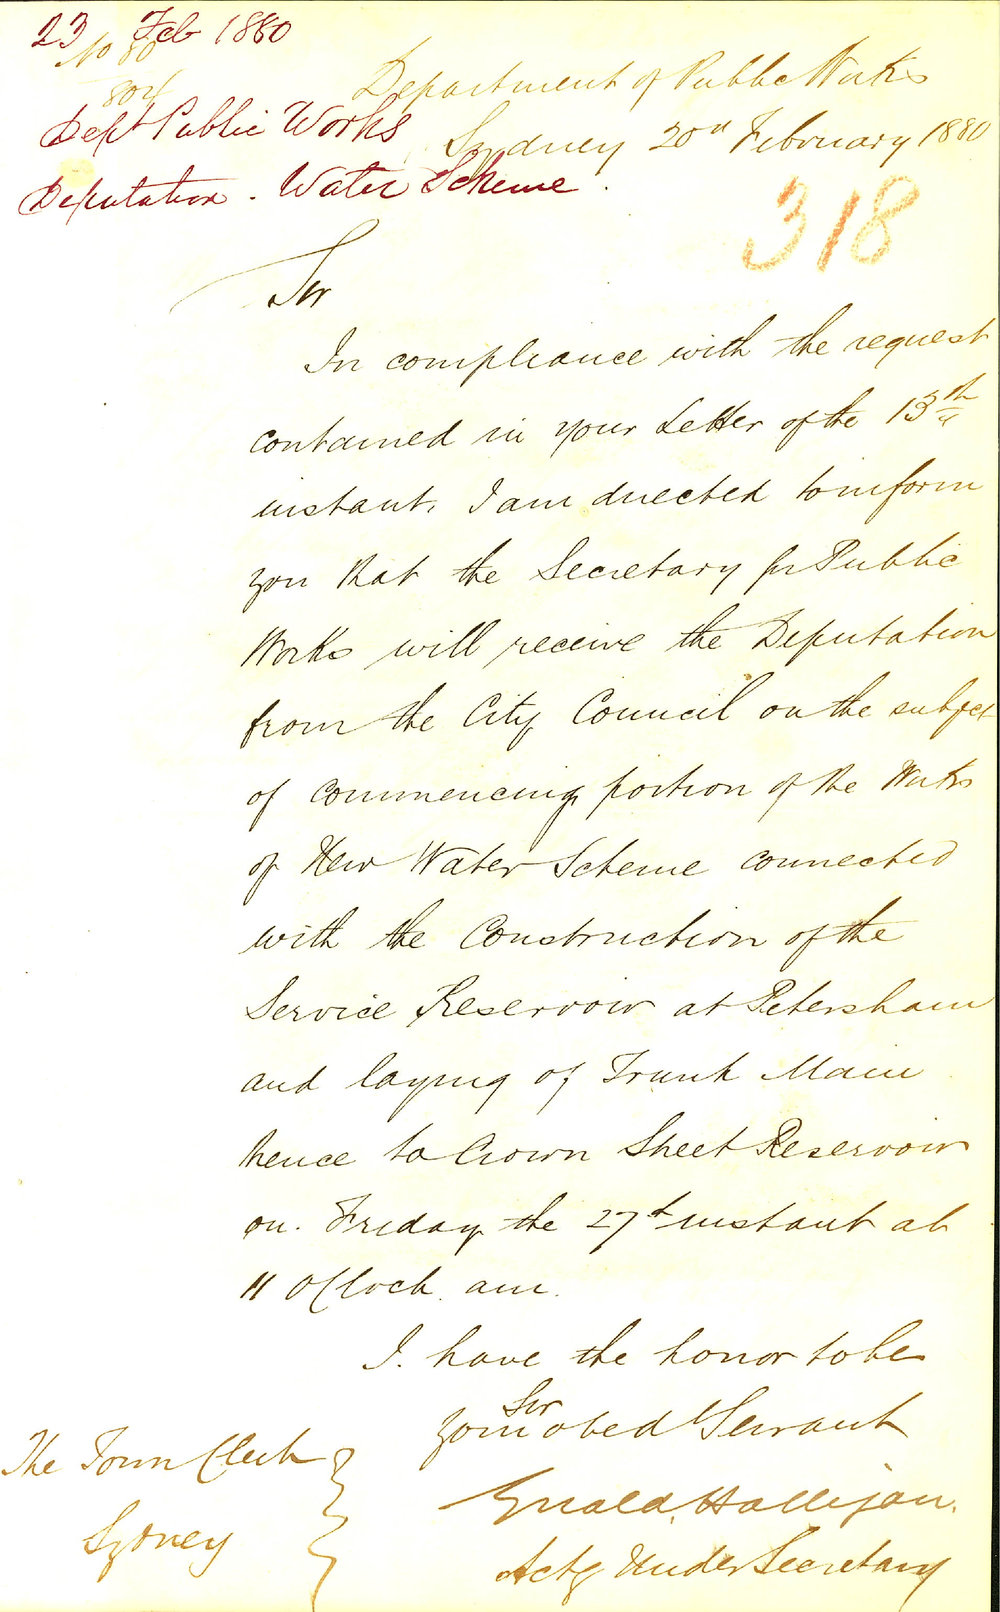 23 Feb 1880
No 80
804
Dept Public Works
Deputation. Water Scheme.
Department of Public Works
Sydney 20th February 1880
318
Sir
In compliance with the request
contained in your Letter of the 13th
instant, I am directed to inform
you that the Secretary for Public
Works will receive the Deputation
from the City Council on the subject
of commencing portion of the Works
of New Water Scheme connected
with the Construction of the
Service Reservoir at Petersham
and laying of Trunk Main
hence to Crown Street Reservoir
on. Friday the 27th instant at
11 O'Clock am.
I. have the honor to be
Sir
your obed Servant
Gerald Halligan.
Actg Under Secretary
The Town Clerk
Sydney